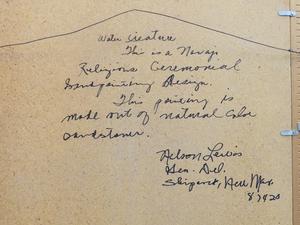 Water Creature
This is a Navajo
Religious Ceremonial
Sandpainting Design.
This painting is
made out of natural Color
sandstones.
Nelson Lewis
Gen. Del.
Shiprock, New Mex.
87420